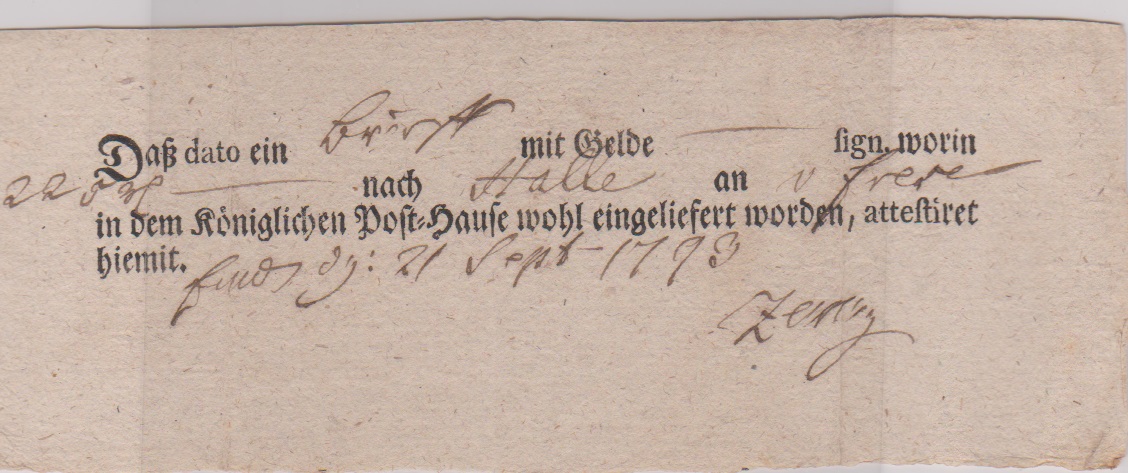 Daß dato ein Brieff mit Gelde — sign. worin
22 — nach Halle an v Frese
in dem Königlichen Post-Hause wohl eingeliefert worden, attestiret
hiemit. 21 Sept 1793